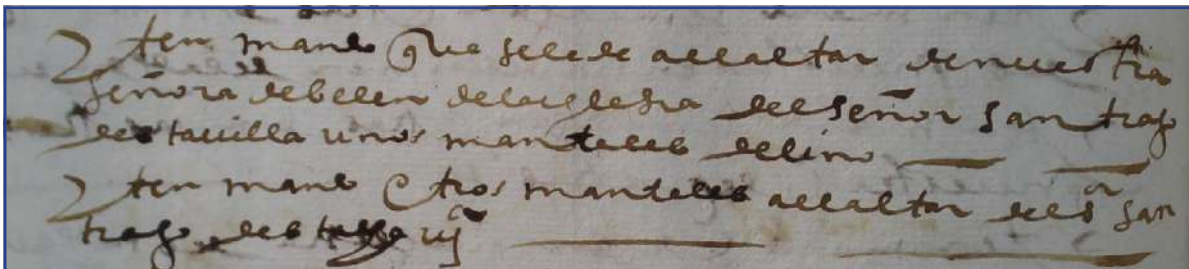 Yten mando que se le de al altar de nuestra
señora de belen de la yglesia del señor santiago
desta villa unos manteles de lino
Yten mando otros manteles al altar del sr san
tiago desta